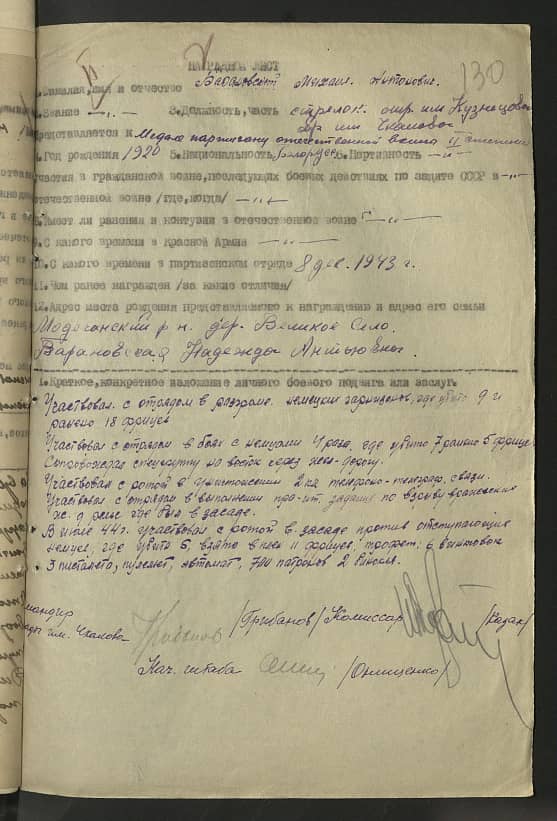 НАГРАДНОЙ ЛИСТ
130
II
1.Фамилия,имя и отчество Михаил Антонович
2.Звание —„— 3.Должность,часть стрелок отр. им Кузнецова
бр. им Чкалова
представляется к Медали партизану отечественной войны II степени
4.Год рождения 1920 5.Национальность Белорус 6.Партийность —„—
участия в гражданской войне,последующих боевых действиях по защите СССР в —„—
отечественной войне /где,когда/ —„—
8.Имеет ли ранения и контузии в отечественной войне —„—
9.С какого времени в Красной Армии —„—
10.С какого времени в партизанском отряде 8 дек. 1943 г.
11.Чем ранее награжден /за какие отличия/
12.Адрес места рождения представляемого к награждению и адрес его семьи
р-н. дер. Великое Село.
Барановская Надежда
1.Краткое,конкретное изложение личного боевого подвига или заслуг.
Участвовал с отрядом в разгроме немецких гарнизонов, где убито 9 и
ранено 18 фрицев
Участвовал с отрядом в боях с немцами 4 раза, где убито 7 ранено 5 фрицев
Сопровождал спецгруппу на восток через жел-дорогу.
Участвовал с ротой в уничтожении 2 км телефоно-телеграф. связи.
Участвовал с отрядом в выполнении задания по взрыву вражеских
ж. д рельс где был в засаде.
В июле 44 г. участвовал с ротой в засаде против отступающих
немцев, где убито 5, взято в плен 11 фрицев, трофеи: 6 винтовок
3 пистолета, пулемет, автомат, 700 патронов 2
Командир
бригады им. Чкалова /Грибанов/ Комиссар /Казак/
Нач. штаба /Онищенко/